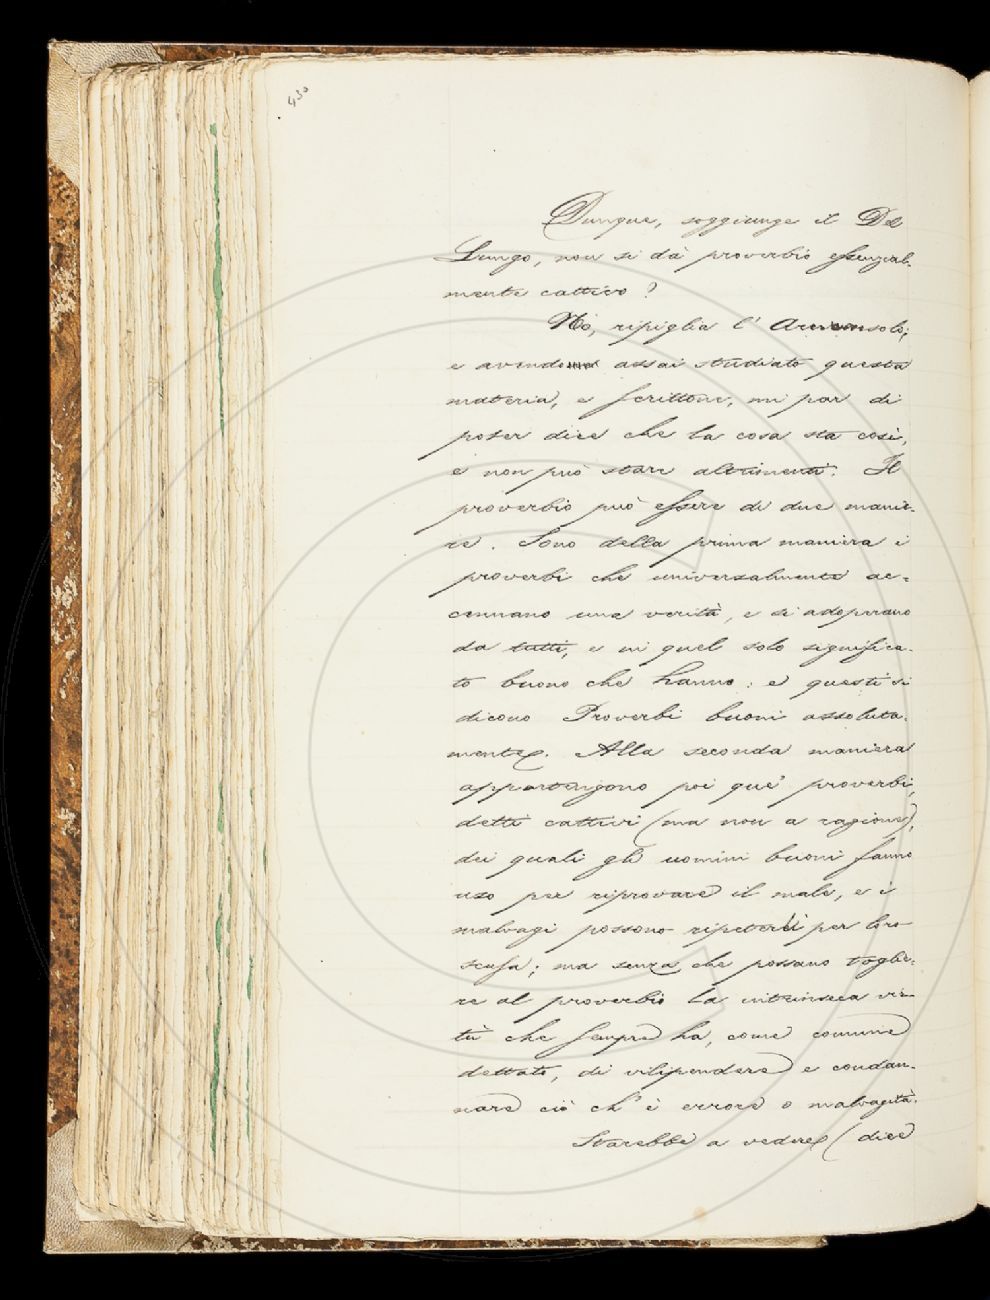 430
Dunque, soggiunge il Del
Lungo, non si dà proverbio essenzial-
mente cattivo?
No, ripiglia l'
e assai studiato questa
materia, e scrittone, mi par di
poter dire che la cosa sta così,
e non può stare altrimenti. Il
proverbio può essere di due manie-
re. Sono della prima maniera i
proverbi che universalmente ac-
cennano una verità, e si adoperano
da tutti, e in quel solo significa-
to buono che hanno: e questi si
dicono Proverbi buoni assoluta-
mente. Alla seconda maniera
appartengono poi que' proverbi,
detti cattivi (ma non a ragione),
dei quali gli uomini buoni fanno
uso per riprovare il male, e i
malvagi possono ripeterli per loro
scusa; ma senza che possano toglie-
re al proverbio la intrinseca vir-
tù che sempre ha, come comune
dettato, di vilipendere e condan-
nare ciò ch'è errore o malvagità.
Starebbe a vedere (dice